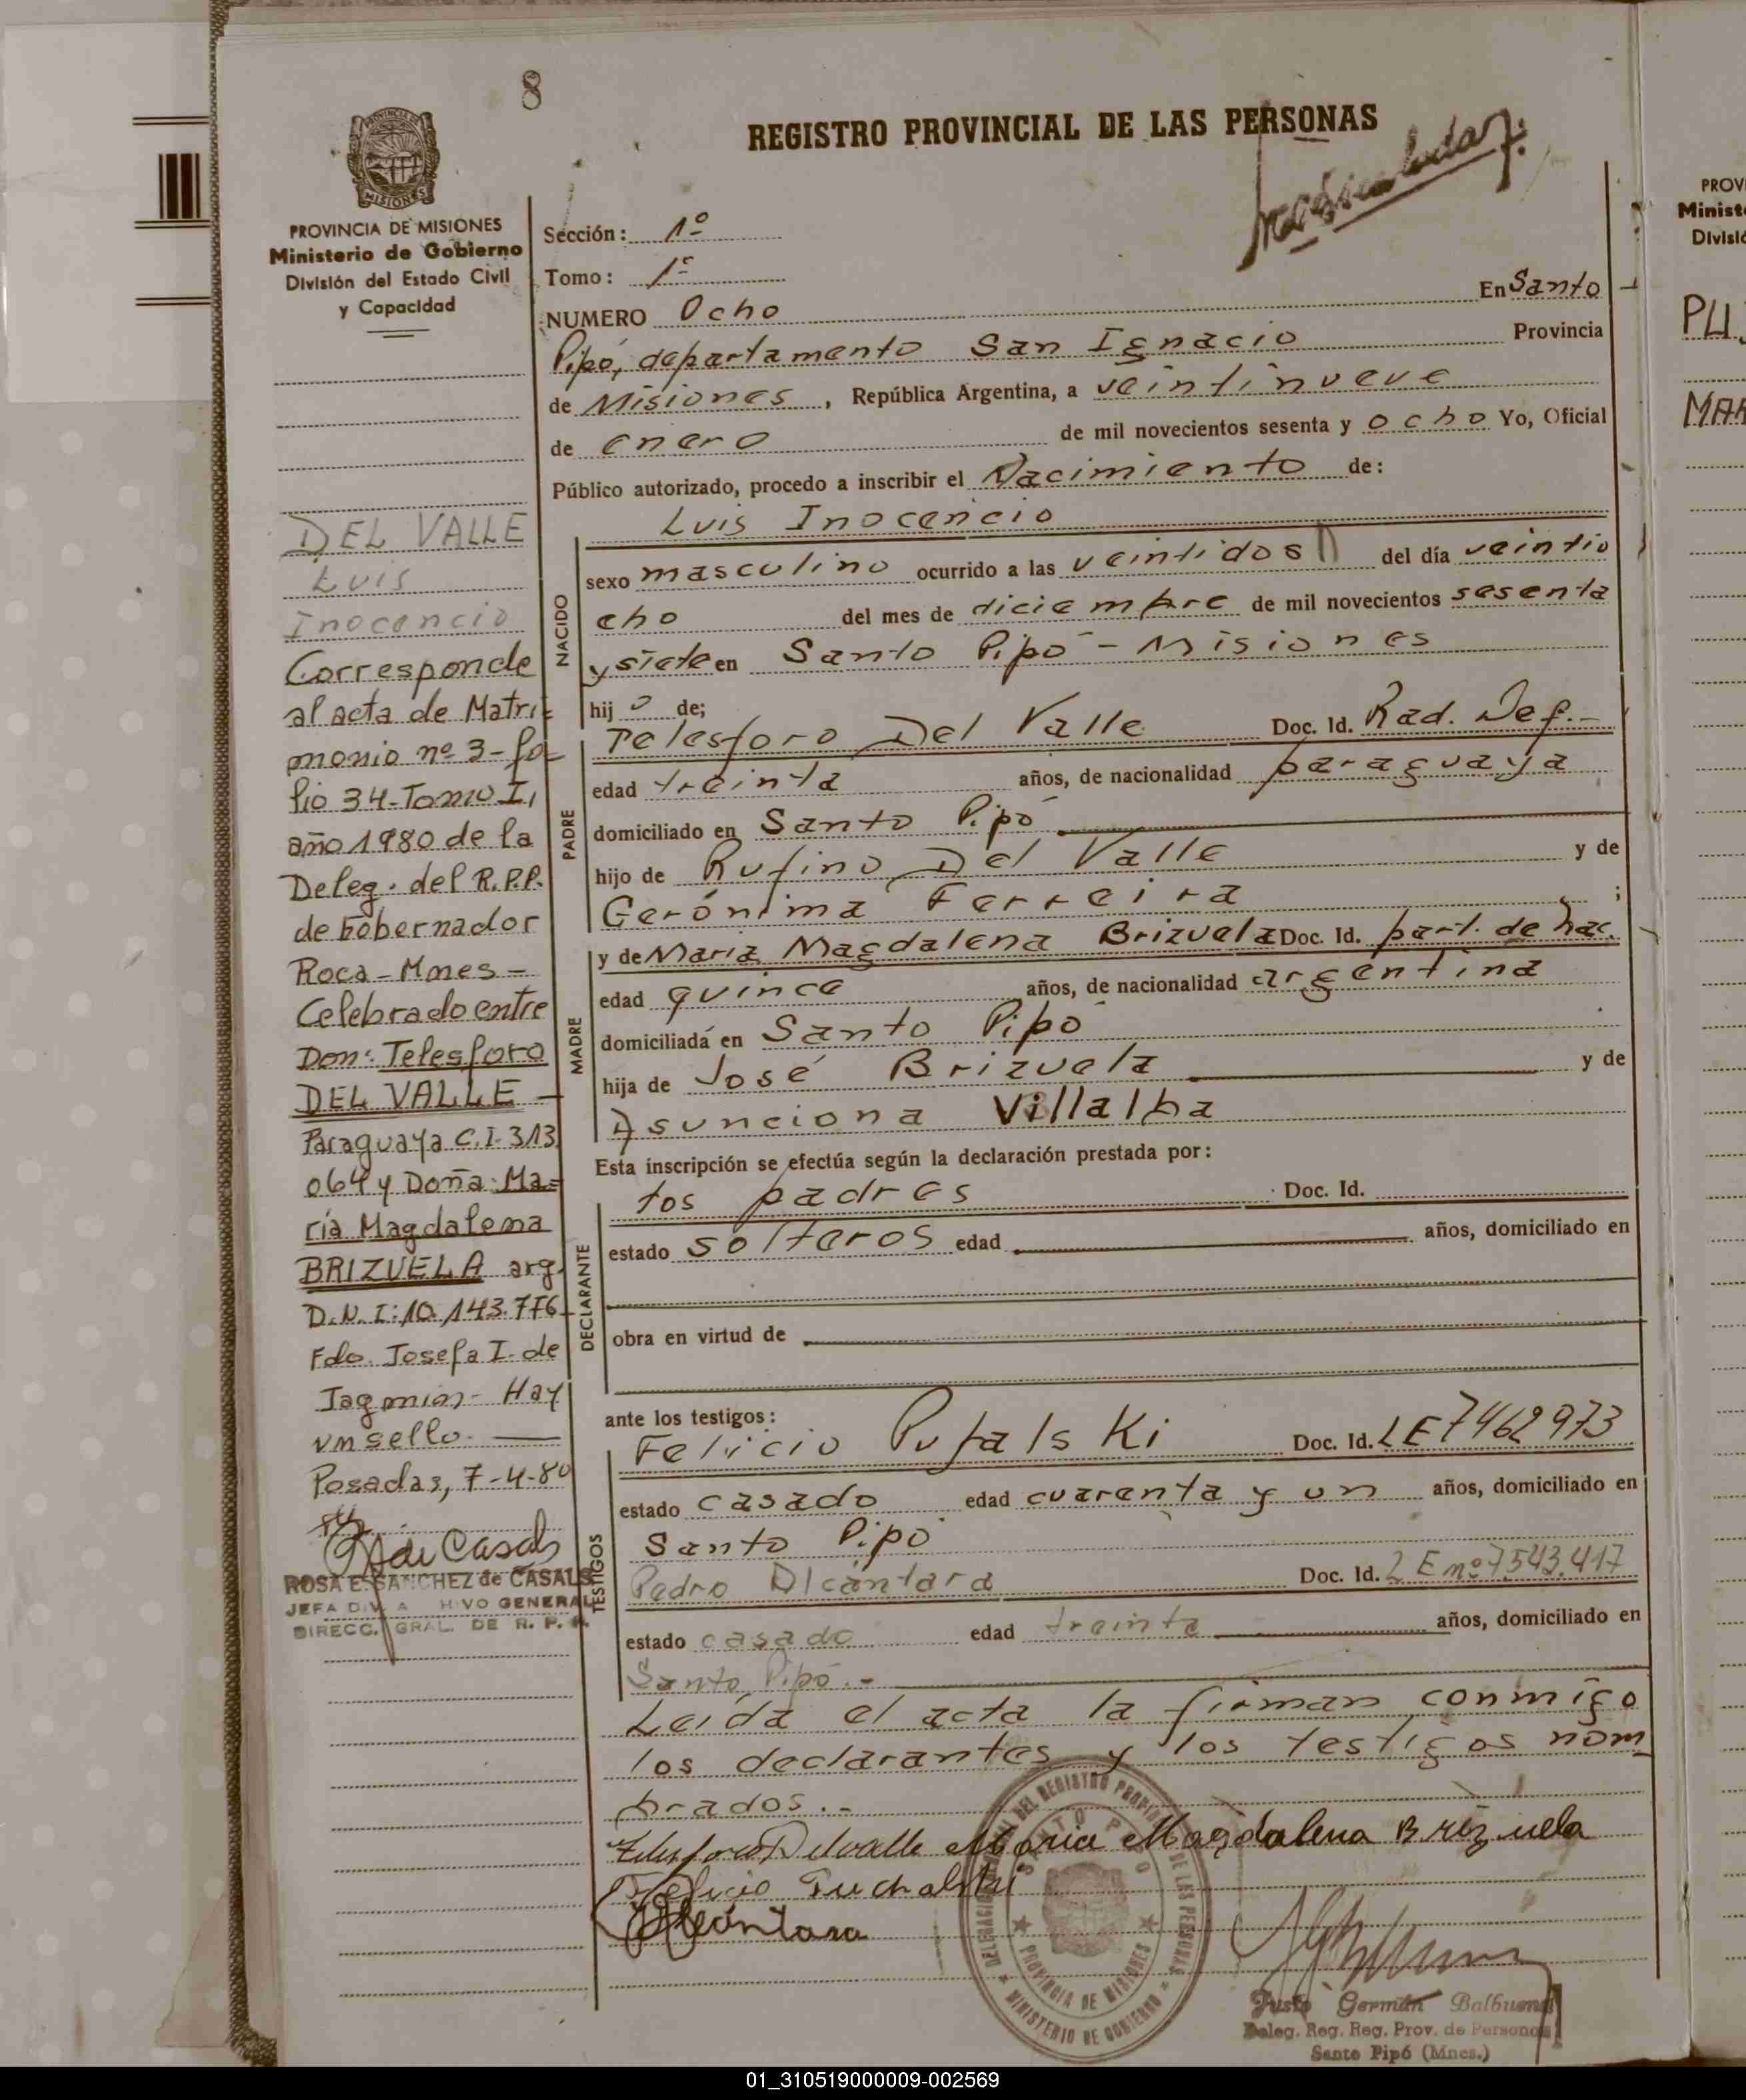 8
REGISTRO PROVINCIAL DE LAS PERSONAS
PROVINCIA DE MISIONES
Ministerio de Gobierno
División del Estado Civil
y Capacidad
DEL VALLE
Luis
Inocencio
Corresponde
al acta de Matri-
monio nº 3 - fo-
lio 34 - Tomo I,
año 1980 de la
Deleg. del R.P.P.
de Gobernador
Roca - Mnes -
Celebrado entre
Don: Telesforo
DEL VALLE -
Paraguaya C.I. 313.
064 y Doña: Ma=
ría Magdalena
BRIZUELA arg.
D.N.I: 10.143.776-
Fdo. Josefa I. de
Jagmin - Hay
un sello.
Posadas, 7-4-80
de Casals
ROSA E. SANCHEZ de CASALS
JEFA DIV. A HIVO GENERAL
DIRECC. GRAL. DE R. P. P.
Sección: 1º
Tomo: 1º
NUMERO Ocho En Santo
Pipó, departamento San Ignacio Provincia
de Misiones, República Argentina, a veintinueve
de enero de mil novecientos sesenta y ocho Yo, Oficial
Público autorizado, procedo a inscribir el Nacimiento de:
Luis Inocencio
NACIDO
sexo masculino ocurrido a las veintidos del día veintio
cho del mes de diciembre de mil novecientos sesenta
y siete en Santo Pipó - Misiones
hij o de;
PADRE
Telesforo Del Valle Doc. Id. Rad. Def.-
edad treinta años, de nacionalidad paraguaya
domiciliado en Santo Pipó
hijo de Rufino Del Valle y de
Gerónima Ferreira ;
MADRE
y de Maria Magdalena Brizuela Doc. Id. part. de nac.
edad quince años, de nacionalidad argentina
domiciliada en Santo Pipó
hija de José Brizuela y de
Asunciona Villalba
Esta inscripción se efectúa según la declaración prestada por:
DECLARANTE
los padres Doc. Id.
estado solteros edad años, domiciliado en
obra en virtud de
ante los testigos:
TESTIGOS
Felicio Pufalski Doc. Id. LE 7462973
estado casado edad cuarenta y un años, domiciliado en
Santo Pipó
Pedro Alcántara Doc. Id. L E nº 7.543.417
estado casado edad treinta años, domiciliado en
Santo Pipó.-
Leída el acta la firman conmigo
los declarantes y los testigos nom
brados.-
Telesforo Delvalle Maria Magdalena Brizuela
Felicio Puchalski
Alcántara
SANTO PIPO
PROVINCIA DE MISIONES
MINISTERIO DE GOBIERNO
Justo German Balbuena
Deleg. Reg. Reg. Prov. de Personas
Santo Pipó (Mnes.)
PROV
Minist
Divisi
MAR
01_310519000009-002569